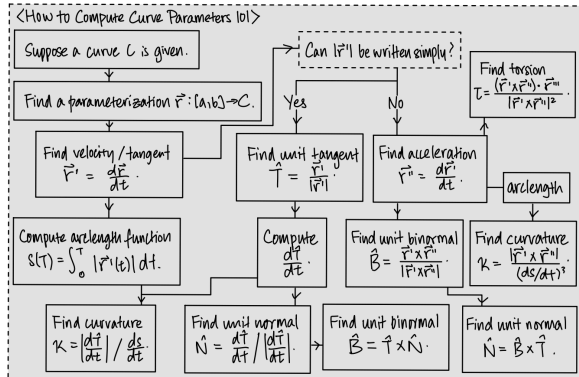 <How to Compute Curve Parameters 101>
Suppose a curve C is given.
Find a parameterization r⃗ : [a,b]→C.
Find velocity/tangent
r⃗' = dr⃗/dt.
Compute arclength function
s(T) = ∫₀ᵀ |r⃗'(t)| dt.
Can |r⃗'| be written simply?
Yes
No
Find unit tangent
T̂ = r⃗'/|r⃗'|.
Compute
dT̂/dt.
Find curvature
κ = |dT̂/dt| / ds/dt.
Find unit normal
N̂ = dT̂/dt / |dT̂/dt|.
Find unit binormal
B̂ = T̂ × N̂.
Find acceleration
r⃗'' = dr⃗'/dt.
Find torsion
τ = (r⃗' × r⃗'')·r⃗'''/|r⃗' × r⃗''|²
arclength
Find unit binormal
B̂ = r⃗' × r⃗''/|r⃗' × r⃗''|.
Find curvature
κ = |r⃗' × r⃗''|/(ds/dt)³
Find unit normal
N̂ = B̂ × T̂.